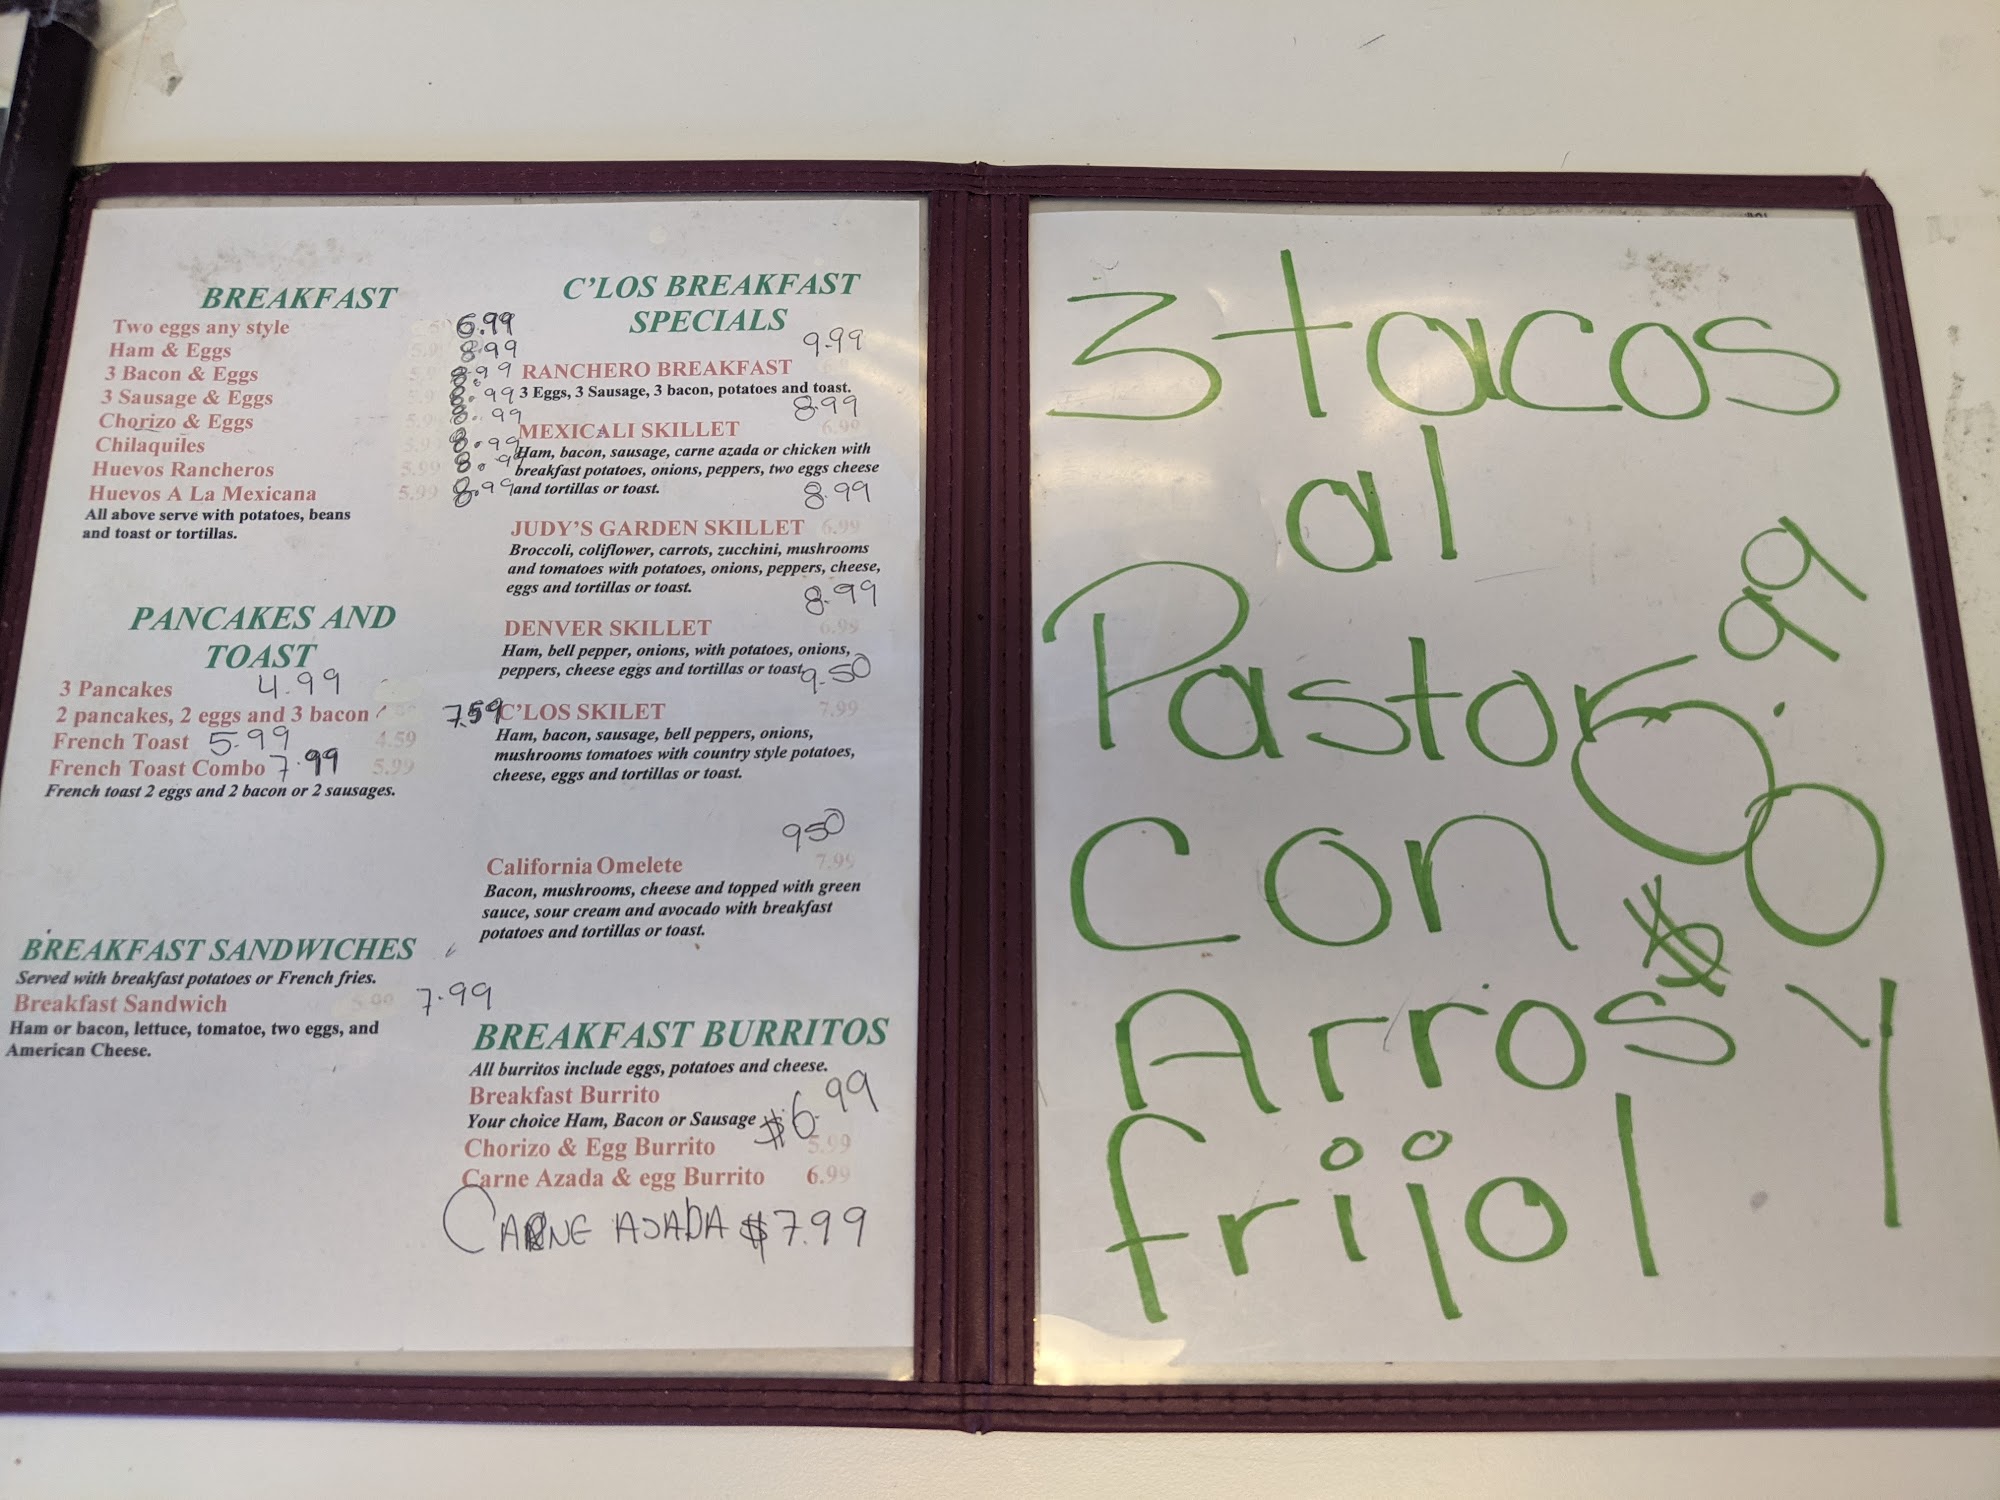 BREAKFAST
Two eggs any style 6.99
Ham & Eggs 8.99
3 Bacon & Eggs 8.99
3 Sausage & Eggs 8.99
Chorizo & Eggs 8.99
Chilaquiles 5.9 8.99
Huevos Rancheros 5.99 8.99
Huevos A La Mexicana 5.99 8.99
All above serve with potatoes, beans
and toast or tortillas.
PANCAKES AND
TOAST
3 Pancakes 4.99
2 pancakes, 2 eggs and 3 bacon 7.59
French Toast 5.99 4.59
French Toast Combo 7.99 5.99
French toast 2 eggs and 2 bacon or 2 sausages.
BREAKFAST SANDWICHES
Served with breakfast potatoes or French fries.
Breakfast Sandwich 5.99 7.99
Ham or bacon, lettuce, tomatoe, two eggs, and
American Cheese.
C'LOS BREAKFAST
SPECIALS
9.99
RANCHERO BREAKFAST
3 Eggs, 3 Sausage, 3 bacon, potatoes and toast.
8.99
MEXICALI SKILLET 6.99
Ham, bacon, sausage, carne azada or chicken with
breakfast potatoes, onions, peppers, two eggs cheese
and tortillas or toast.
8.99
JUDY'S GARDEN SKILLET 6.99
Broccoli, coliflower, carrots, zucchini, mushrooms
and tomatoes with potatoes, onions, peppers, cheese,
eggs and tortillas or toast.
8.99
DENVER SKILLET 6.99
Ham, bell pepper, onions, with potatoes, onions,
peppers, cheese eggs and tortillas or toast.
9.50
C'LOS SKILET 7.99
Ham, bacon, sausage, bell peppers, onions,
mushrooms tomatoes with country style potatoes,
cheese, eggs and tortillas or toast.
950
California Omelete 7.99
Bacon, mushrooms, cheese and topped with green
sauce, sour cream and avocado with breakfast
potatoes and tortillas or toast.
BREAKFAST BURRITOS
All burritos include eggs, potatoes and cheese.
Breakfast Burrito
Your choice Ham, Bacon or Sausage $6.99
Chorizo & Egg Burrito 5.99
Carne Azada & egg Burrito 6.99
CARNE ASADA $7.99
3 tacos
al
Pastor
con
Arros y
frijol